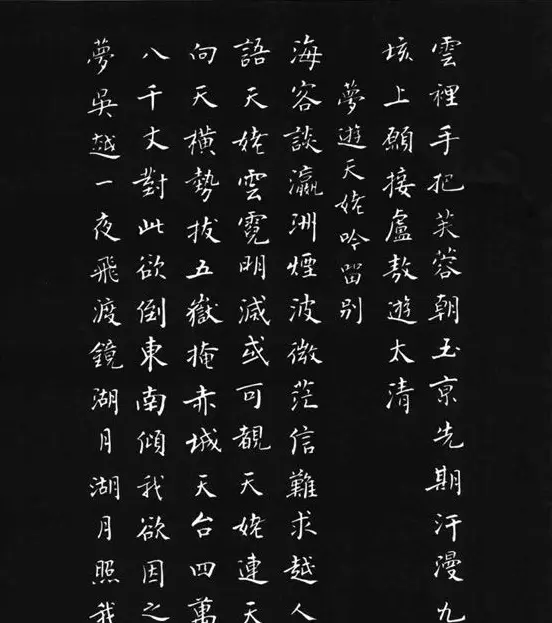 雲裡手把芙蓉朝玉京先期汗漫九
垓上願接盧敖遊太清
夢遊天姥吟留別
海客談瀛洲煙波微茫信難求越人
語天姥雲霓明滅或可覩天姥連天
向天橫勢拔五嶽掩赤城天台四萬
八千丈對此欲倒東南傾我欲因之
夢吳越一夜飛渡鏡湖月湖月照我